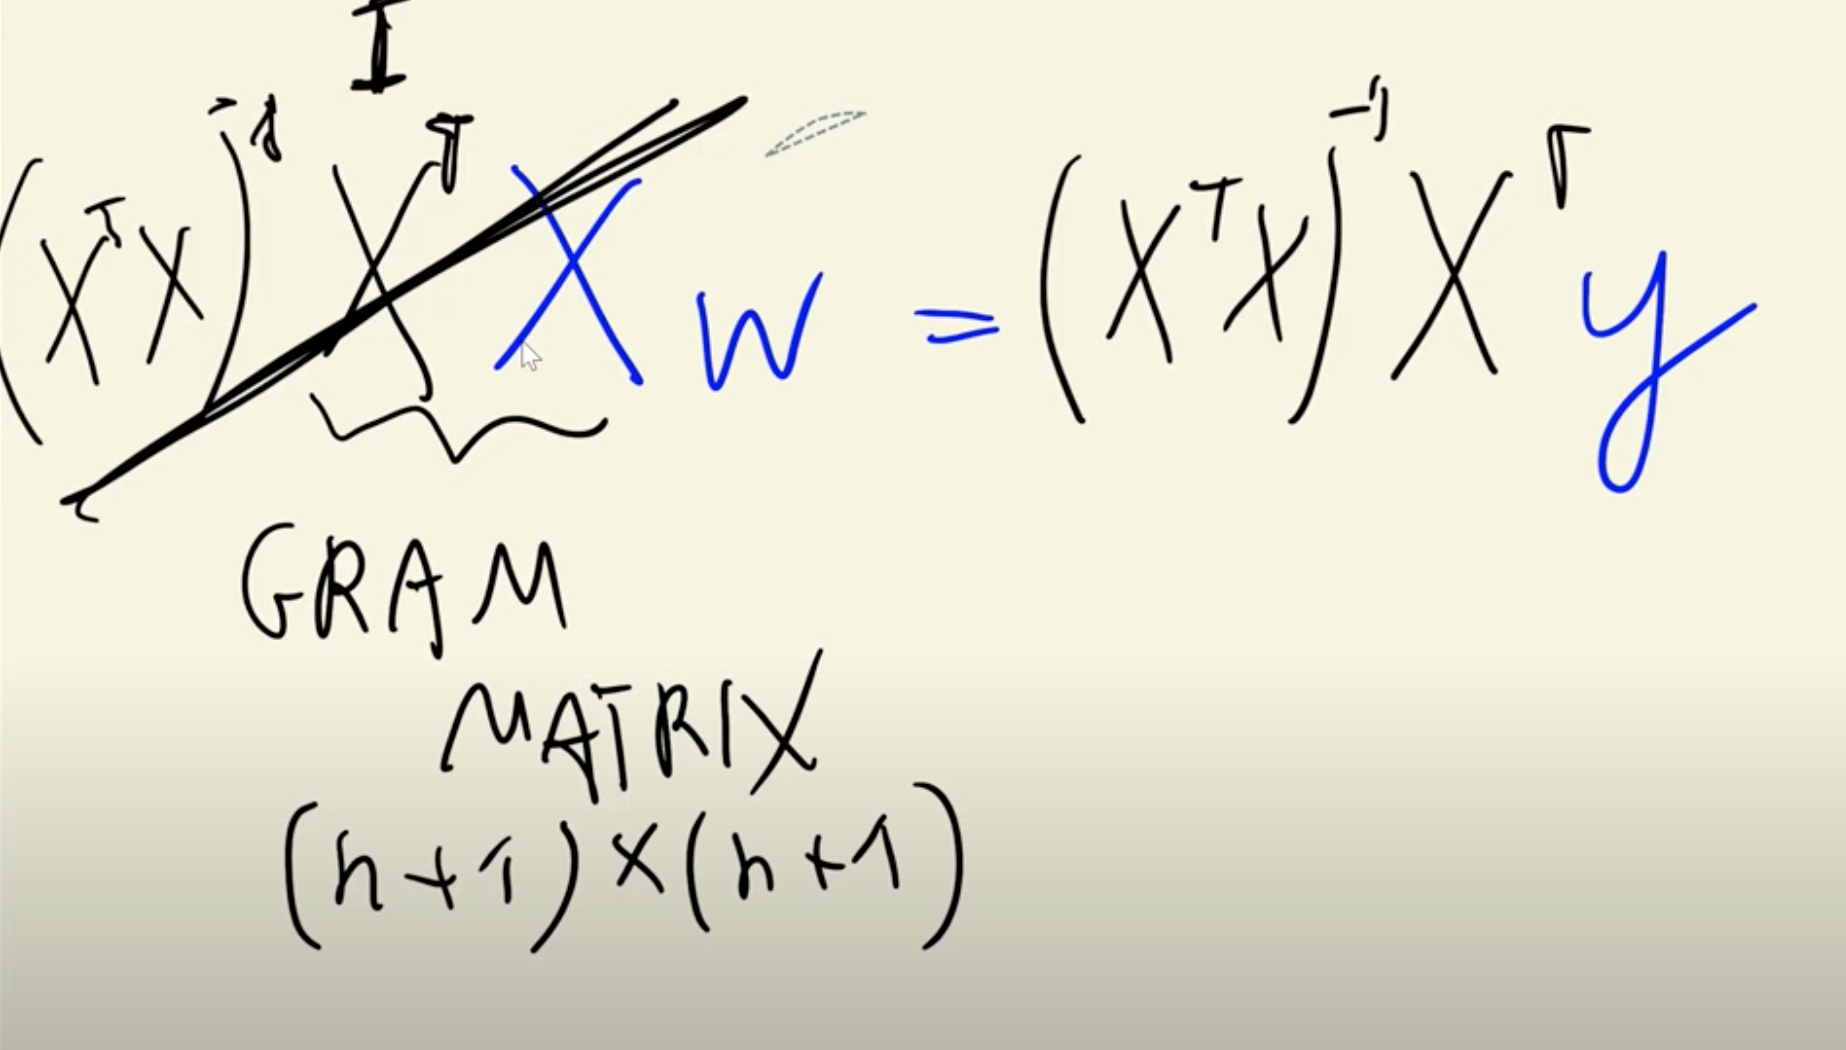 I
(XᵀX)⁻¹ Xᵀ X w = (XᵀX)⁻¹ Xᵀ y
GRAM
MATRIX
(n+1)×(n+1)